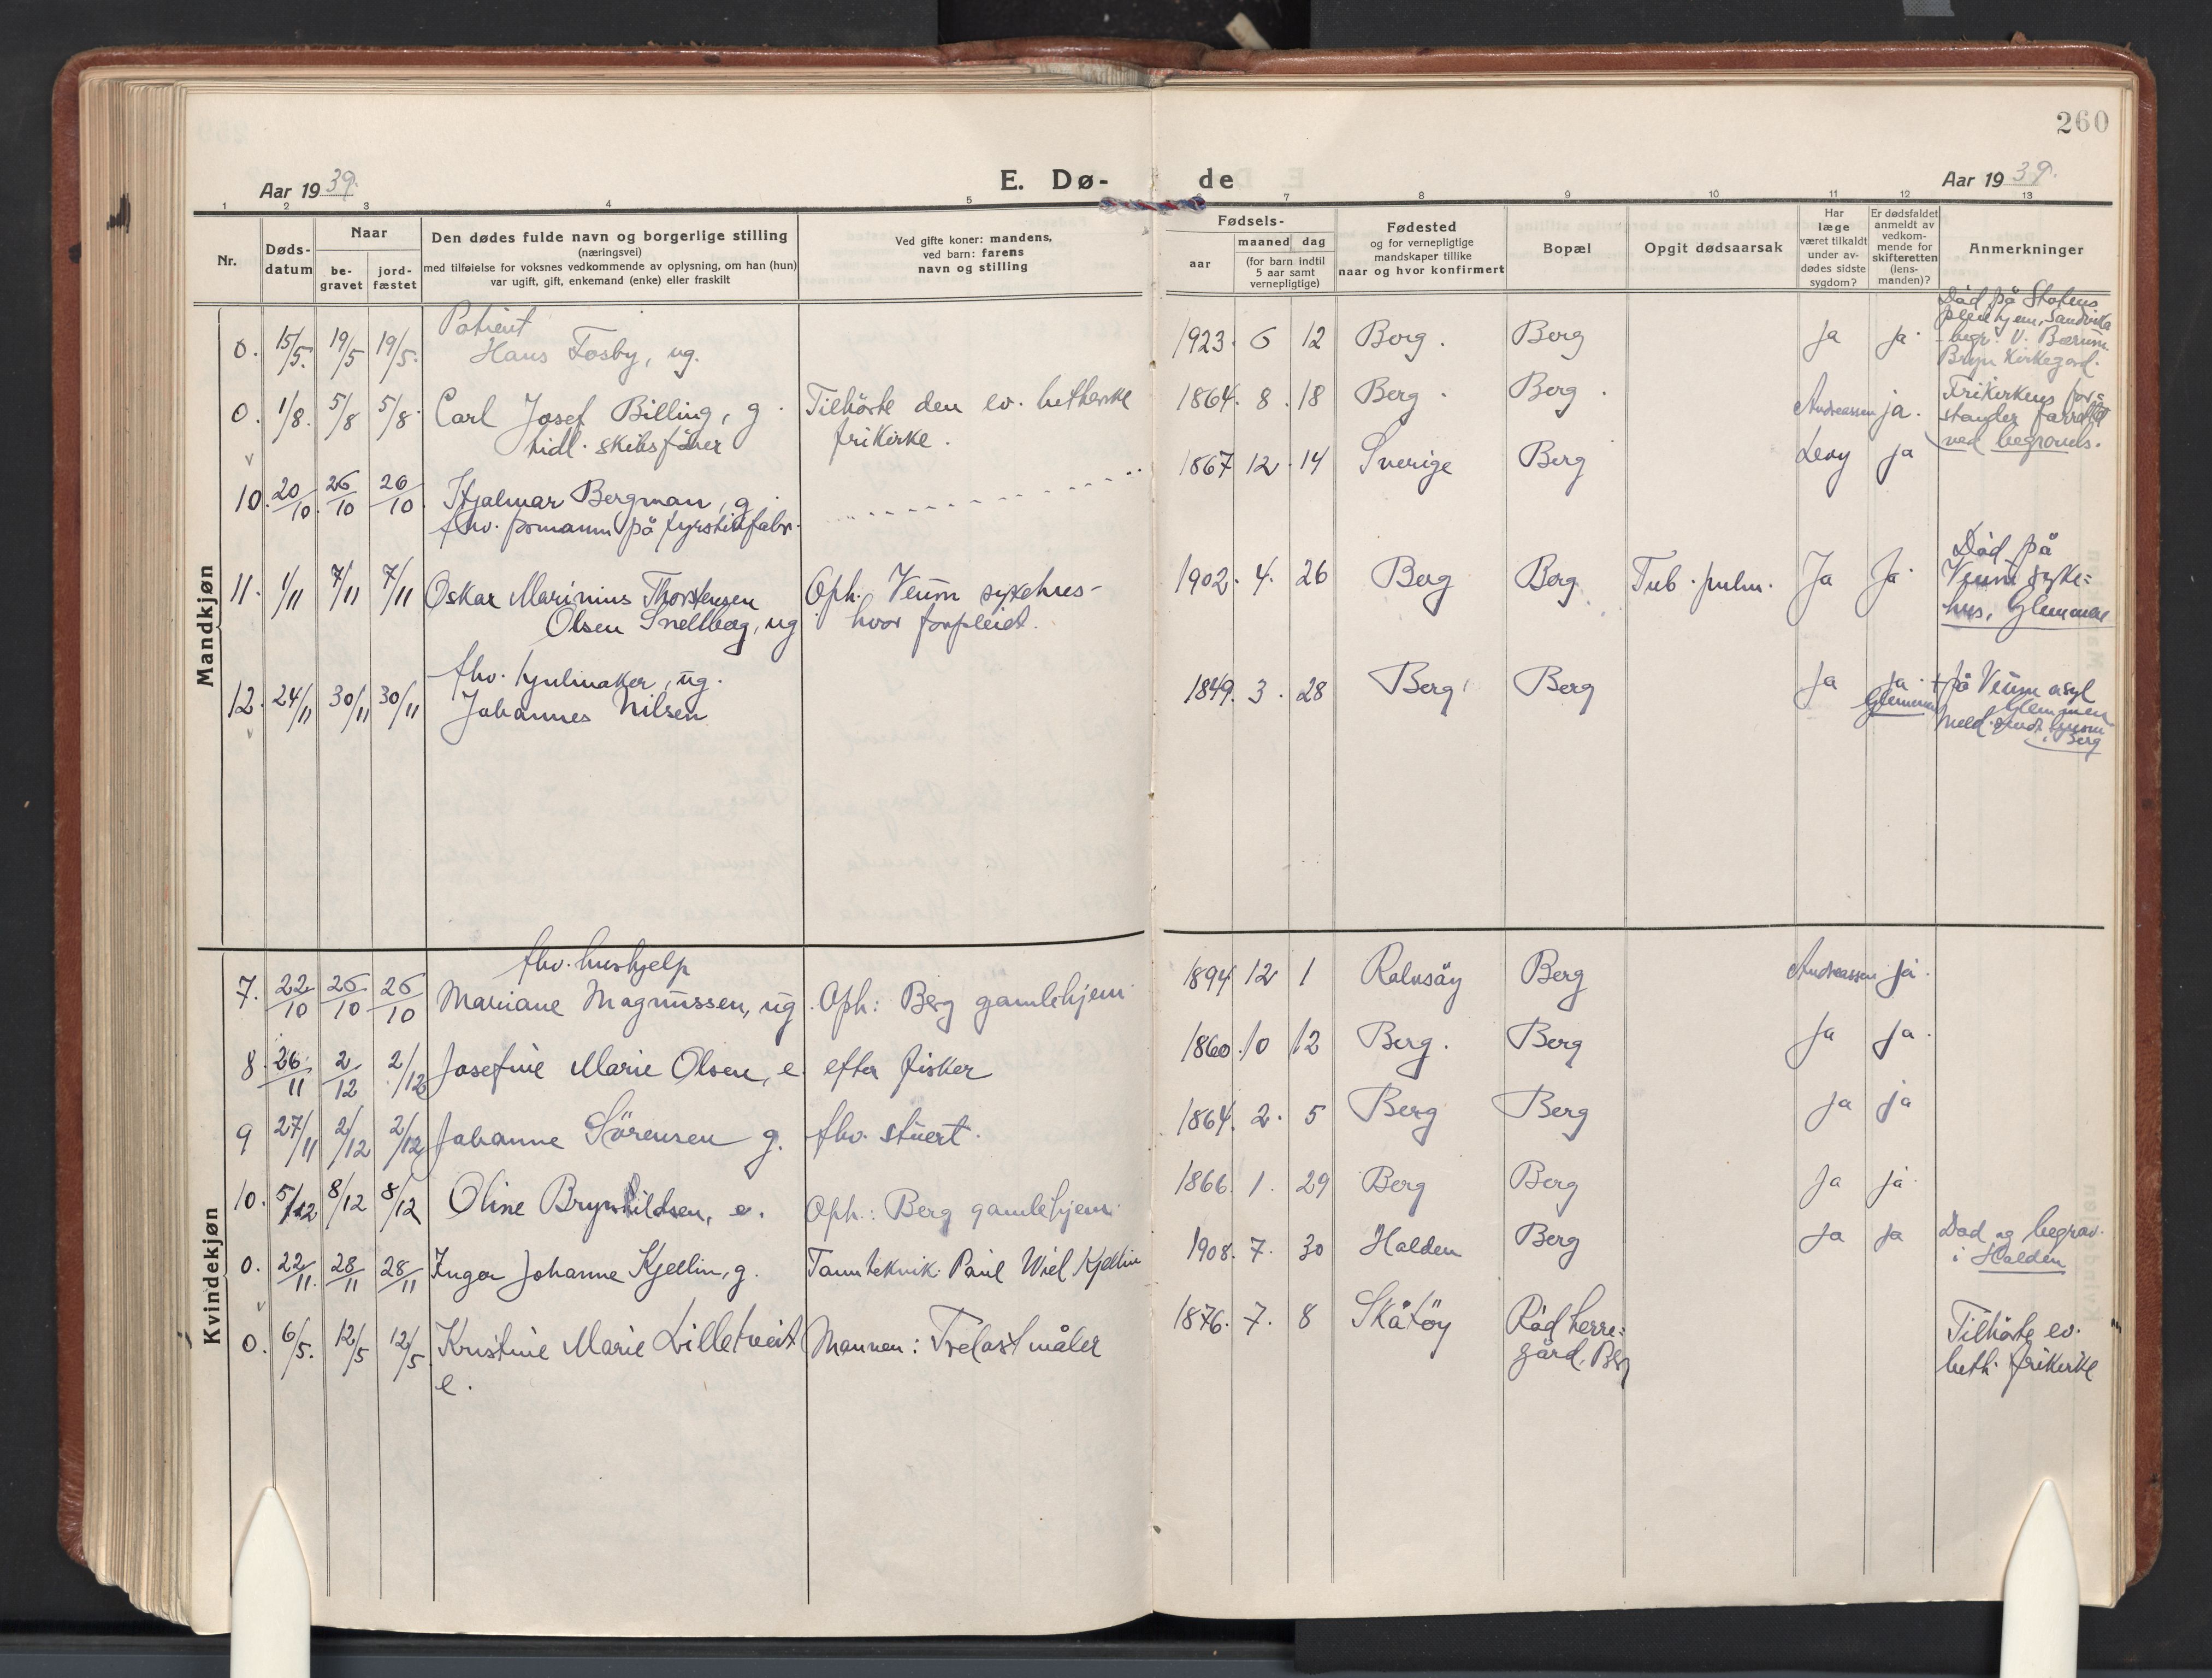 260
Aar 1939.
E. Dø-
de
Aar 1939.
1 2 3 4 5 6 7 8 9 10 11 12 13
Nr.
Døds-
datum
Naar
be-
gravet
jord-
fæstet
Den dødes fulde navn og borgerlige stilling
(næringsvei)
med tilføielse for voksnes vedkommende av oplysning, om han (hun)
var ugift, gift, enkemand (enke) eller fraskilt
Ved gifte koner: mandens,
ved barn: farens
navn og stilling
Fødsels-
aar
maaned dag
(for barn indtil
5 aar samt
vernepligtige)
Fødested
og for vernepligtige
mandskaper tillike
naar og hvor konfirmert
Bopæl
Opgit dødsaarsak
Har
læge
været tilkaldt
under av-
dødes sidste
sygdom?
Er dødsfaldet
anmeldt av
vedkom-
mende for
skifteretten
(lens-
manden)?
Anmerkninger
Mandkjøn
Patient
0. 15/5. 19/5 19/5. Hans Tosby, ug. 1923. 6 12 Borg. Borg Ja ja.
Död på Statens
pleiehjem, Sandvika
begr. V. Bærum
Bryn Kirkegård.
0. 1/8. 5/8 5/8. Carl Josef Billing, g. Tilhörte den ev. lutherske 1864. 8. 18 Berg. Berg. Andreassen ja.
tidl. skibsförer frikirke.
Frikirkens for=
stander forrettet
ved begravels.
10. 20/10. 26/10 26/10. Hjalmar Bergman, g. 1867 12. 14 Sverige Berg Levy ja
fhv. formann på fyrstikfabr.
11. 1/11 7/11 7/11 Oskar Marinius Thorstensen Oph. Veum sykehus- 1902. 4. 26 Berg Berg. Tub. pulm. Ja Ja.
Olsen Snelbag, ug hvor forpleiet.
Död på
Veum syke=
hus, Glemmen
fhv. hjulmaker, ug.
12. 24/11 30/11 30/11 Johannes Nilsen 1849. 3. 28 Berg. Berg Ja ja.
Glemmen
+ på Veum asyl
Glemmen
Meld. sendt
i Berg
Kvindekjøn
fhv. hushjelp
7. 22/10 26/10 26/10 Mariane Magnussen, ug. Oph: Berg gamlehjem 1894 12 1 Rolvsöy Berg Andreassen ja.
8. 26/11 2/12 2/12 Josefine Marie Olsen, e. efter fisker 1860. 10 12 Berg. Berg Ja ja.
9 27/11 2/12 2/12 Johanne Sörensen g. fhv. stuert. 1864. 2. 5 Berg Berg Ja ja
10. 5/12 8/12 8/12 Oline Brynhildsen, e. Oph.: Berg gamlehjem 1866. 1. 29 Berg Berg Ja ja.
0. 22/11. 28/11 28/11 Inger Johanne Kjellin, g. Tannteknik. Paul Wiel Kjellin 1908. 7. 30 Halden Berg Ja ja
Död og begrav.
i Halden
0. 6/5. 12/5 12/5 Kristine Marie Lilletveit Mannen: Trelastmåler 1876. 7. 8 Skåtöy Röd herre=
e. gård, Berg
Tilhörte ev.
luth. frikirke